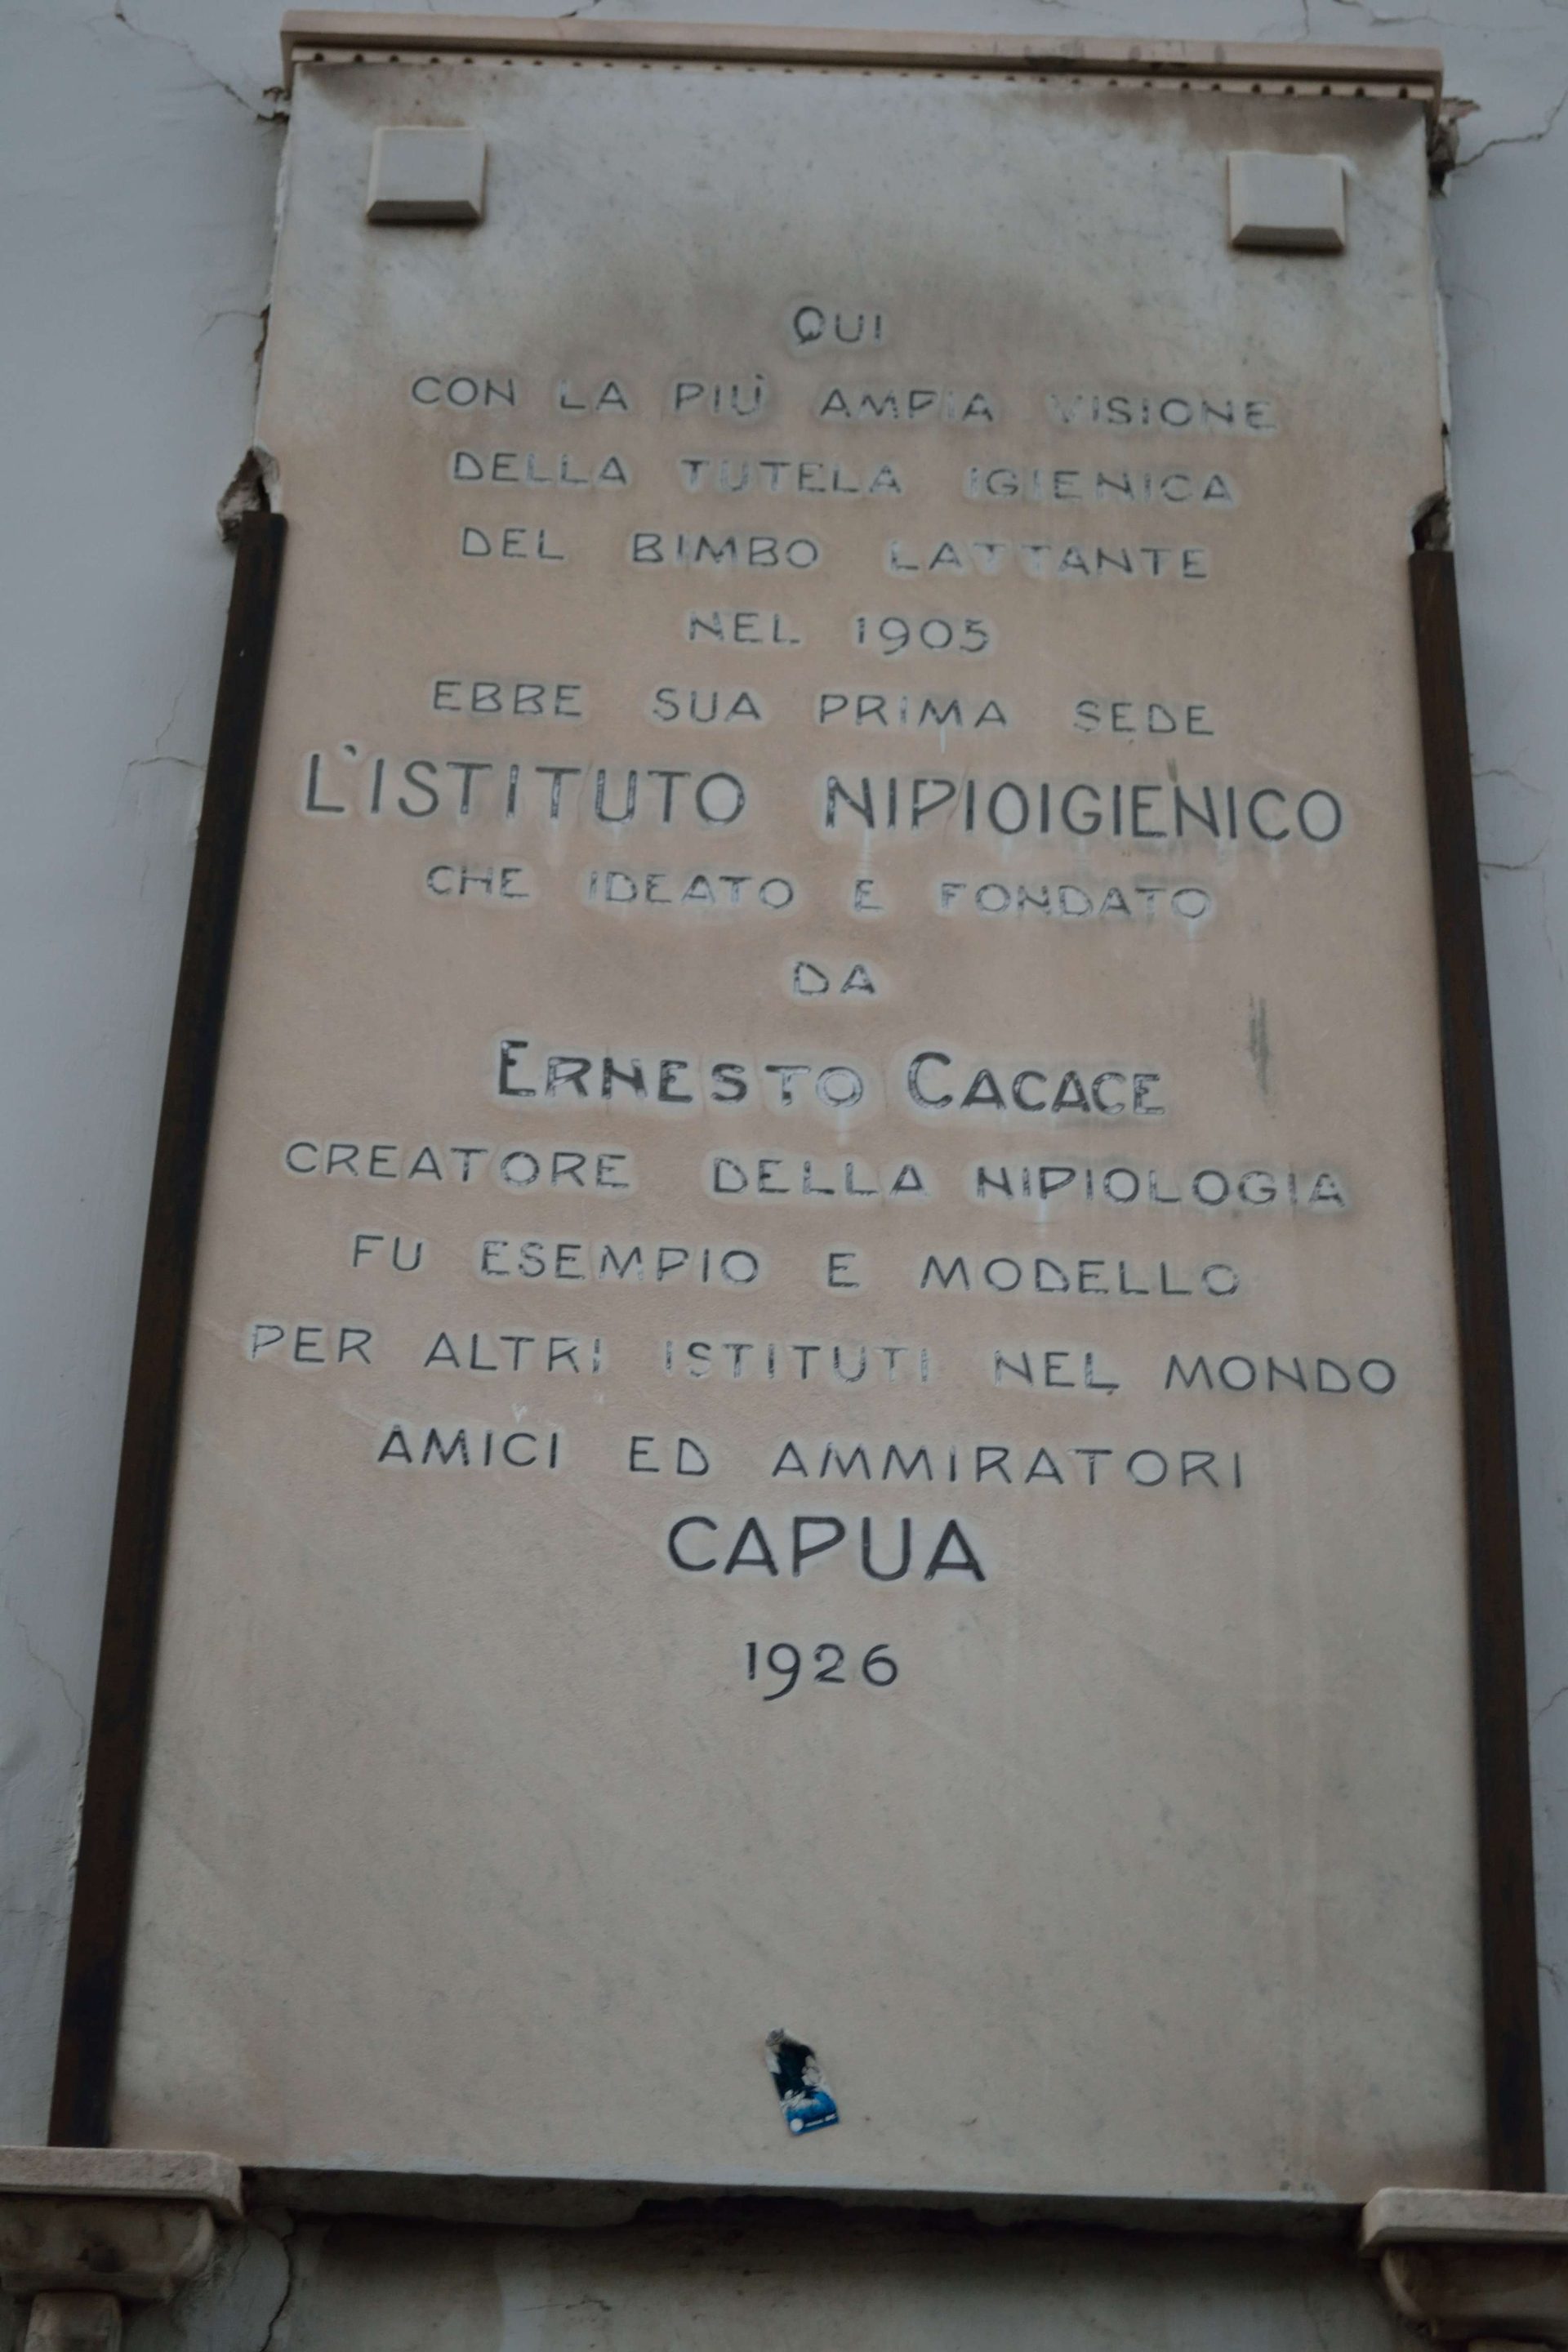 QUI
CON LA PIÙ AMPIA VISIONE
DELLA TUTELA IGIENICA
DEL BIMBO LATTANTE
NEL 1905
EBBE SUA PRIMA SEDE
L'ISTITUTO NIPIOIGIENICO
CHE IDEATO E FONDATO
DA
ERNESTO CACACE
CREATORE DELLA NIPIOLOGIA
FU ESEMPIO E MODELLO
PER ALTRI ISTITUTI NEL MONDO
AMICI ED AMMIRATORI
CAPUA
1926